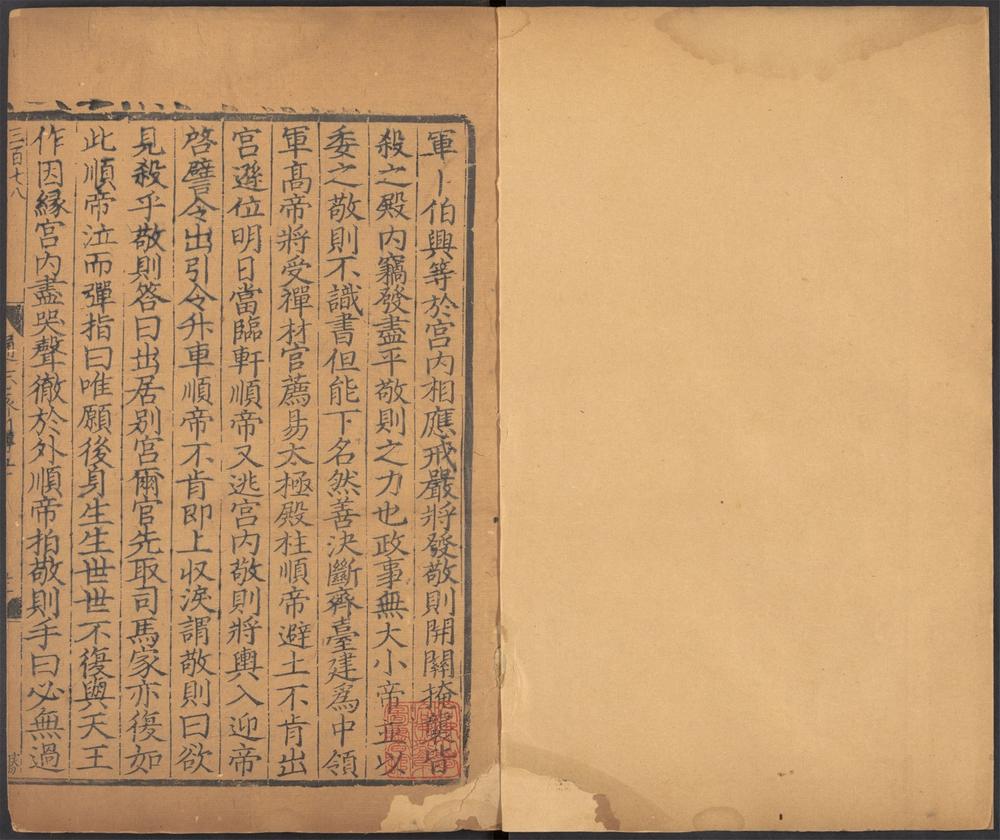 軍卜伯興等於宫内相應戒嚴將發敬則開關掩襲皆
殺之殿内竊發盡平敬則之力也政事無大小帝並以
委之敬則不識書但能下名然善決斷齊臺建爲中領
軍髙帝將受禪材官薦易太極殿柱順帝避土不肯出
宫遜位明日當臨軒順帝又逃宫内敬則將輿入迎帝
啓譬令出引令升車順帝不肯即上收淚謂敬則曰欲
見殺乎敬則答曰出居别宫爾官先取司馬家亦復如
此順帝泣而彈指曰唯願後身生生世世不復與天王
作因緣宫内盡哭聲徹於外順帝拍敬則手曰必無過
三百七八